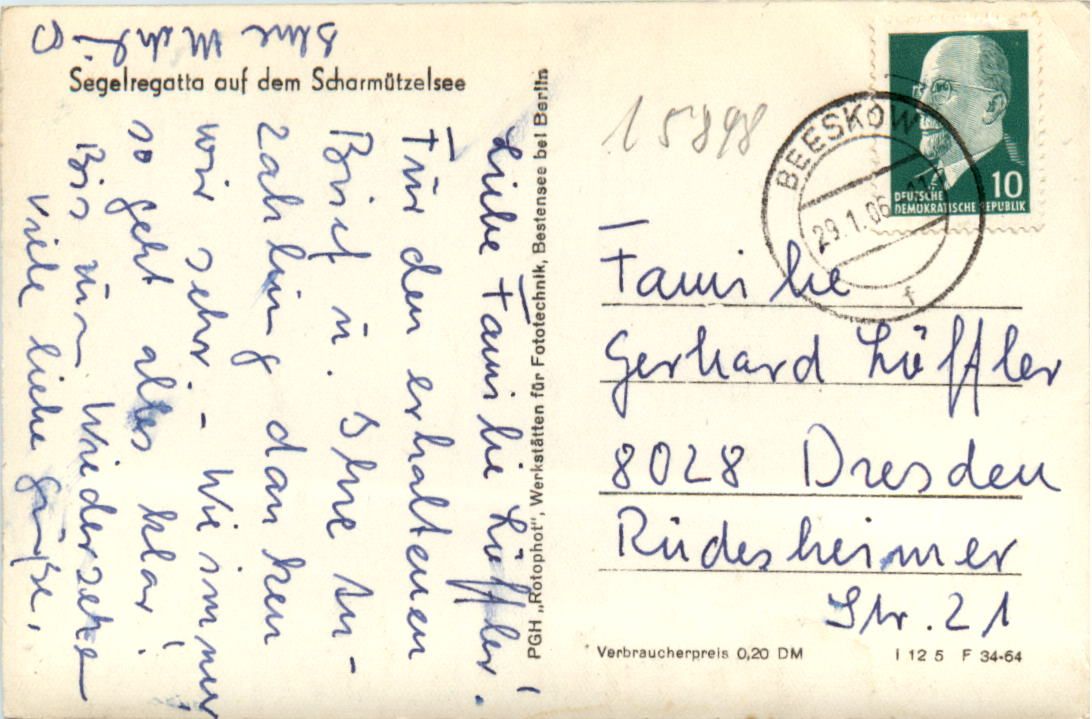 Segelregatta auf dem Scharmützelsee
Liebe Familie Löffler!
Für den erhaltenen
Brief u. Ihre An-
zahlung danken
wir sehr. - Wie immer
so geht alles klar!
Bis zum Wiedersehen
viele liebe Grüße,
Ihre
PGH „Rotophot“, Werkstätten für Fototechnik, Bestensee bei Berlin
15898
BEESKOW
29.1.06
f
10
DEUTSCHE
DEMOKRATISCHE REPUBLIK
Familie
Gerhard Löffler
8028 Dresden
Rüdesheimer
Str. 21
Verbraucherpreis 0,20 DM
I 12 5 F 34-64